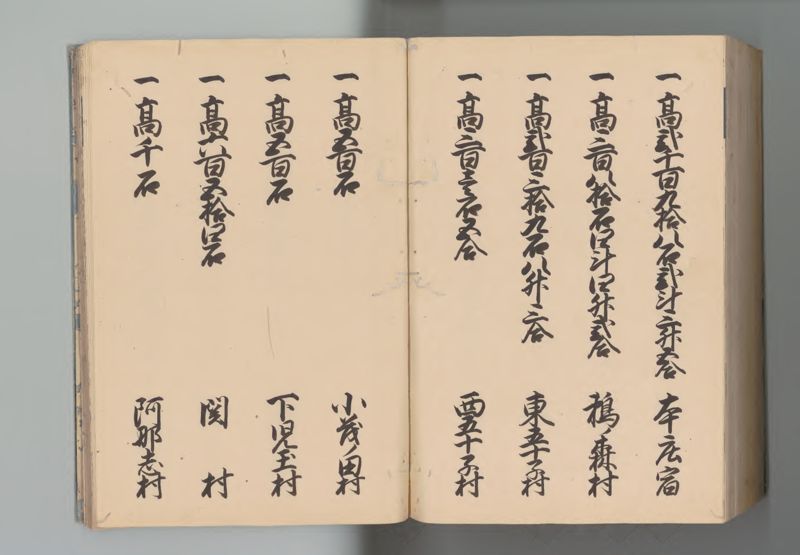 一高弐千百九拾八石弐斗三升五合 本庄宿
一高三百八拾石四斗四升弐合 鵜森村
一高弐百三拾九石八升三合 東五十子村
一高三百壱石五合 西五十子村
一高五百石 小茂田村
一高五百石 下児玉村
一高六百五拾四石 関村
一高千石 阿那志村